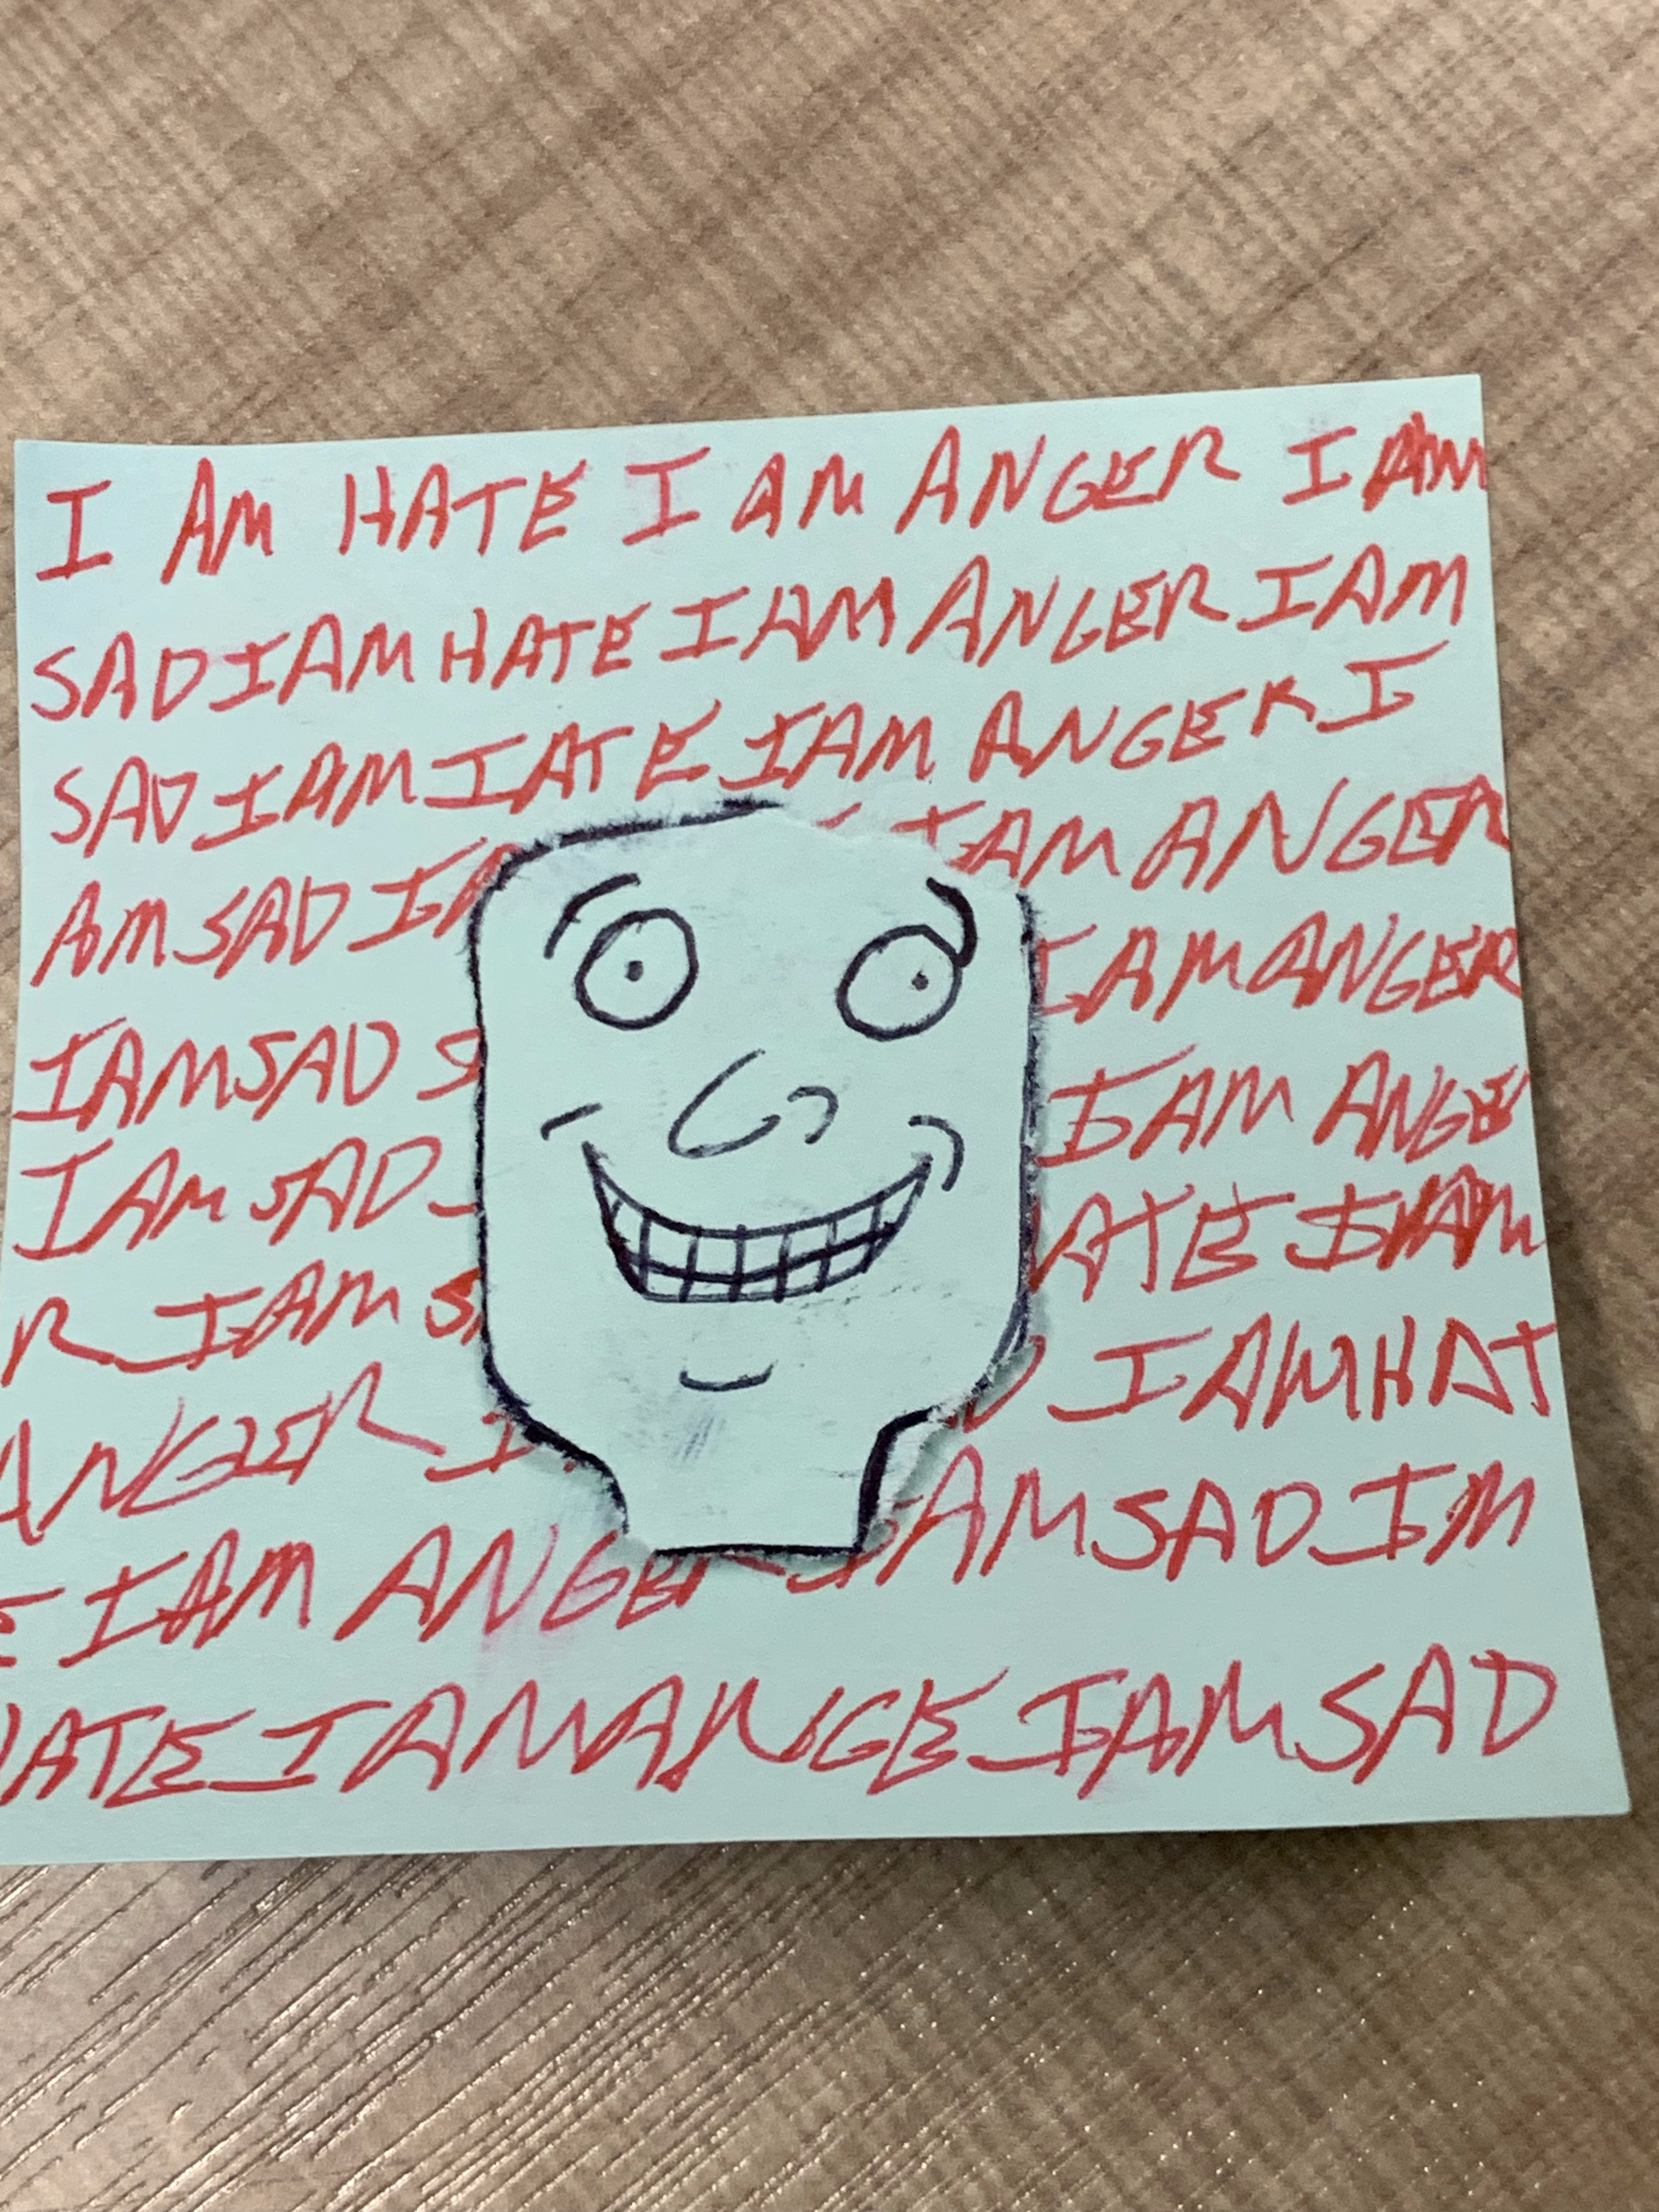 I AM HATE I AM ANGER I AM
SAD I AM HATE I AM ANGER I AM
SAD I AM IATE I AM ANGER I
AM SAD I AM ANGER
I AM SAD I AM ANGER
I AM SAD I AM ANGE
R I AM ATE I AM
ANGER I I AM HAT
E I AM ANGER I AM SAD I M
HATE I AM ANGE I AM SAD